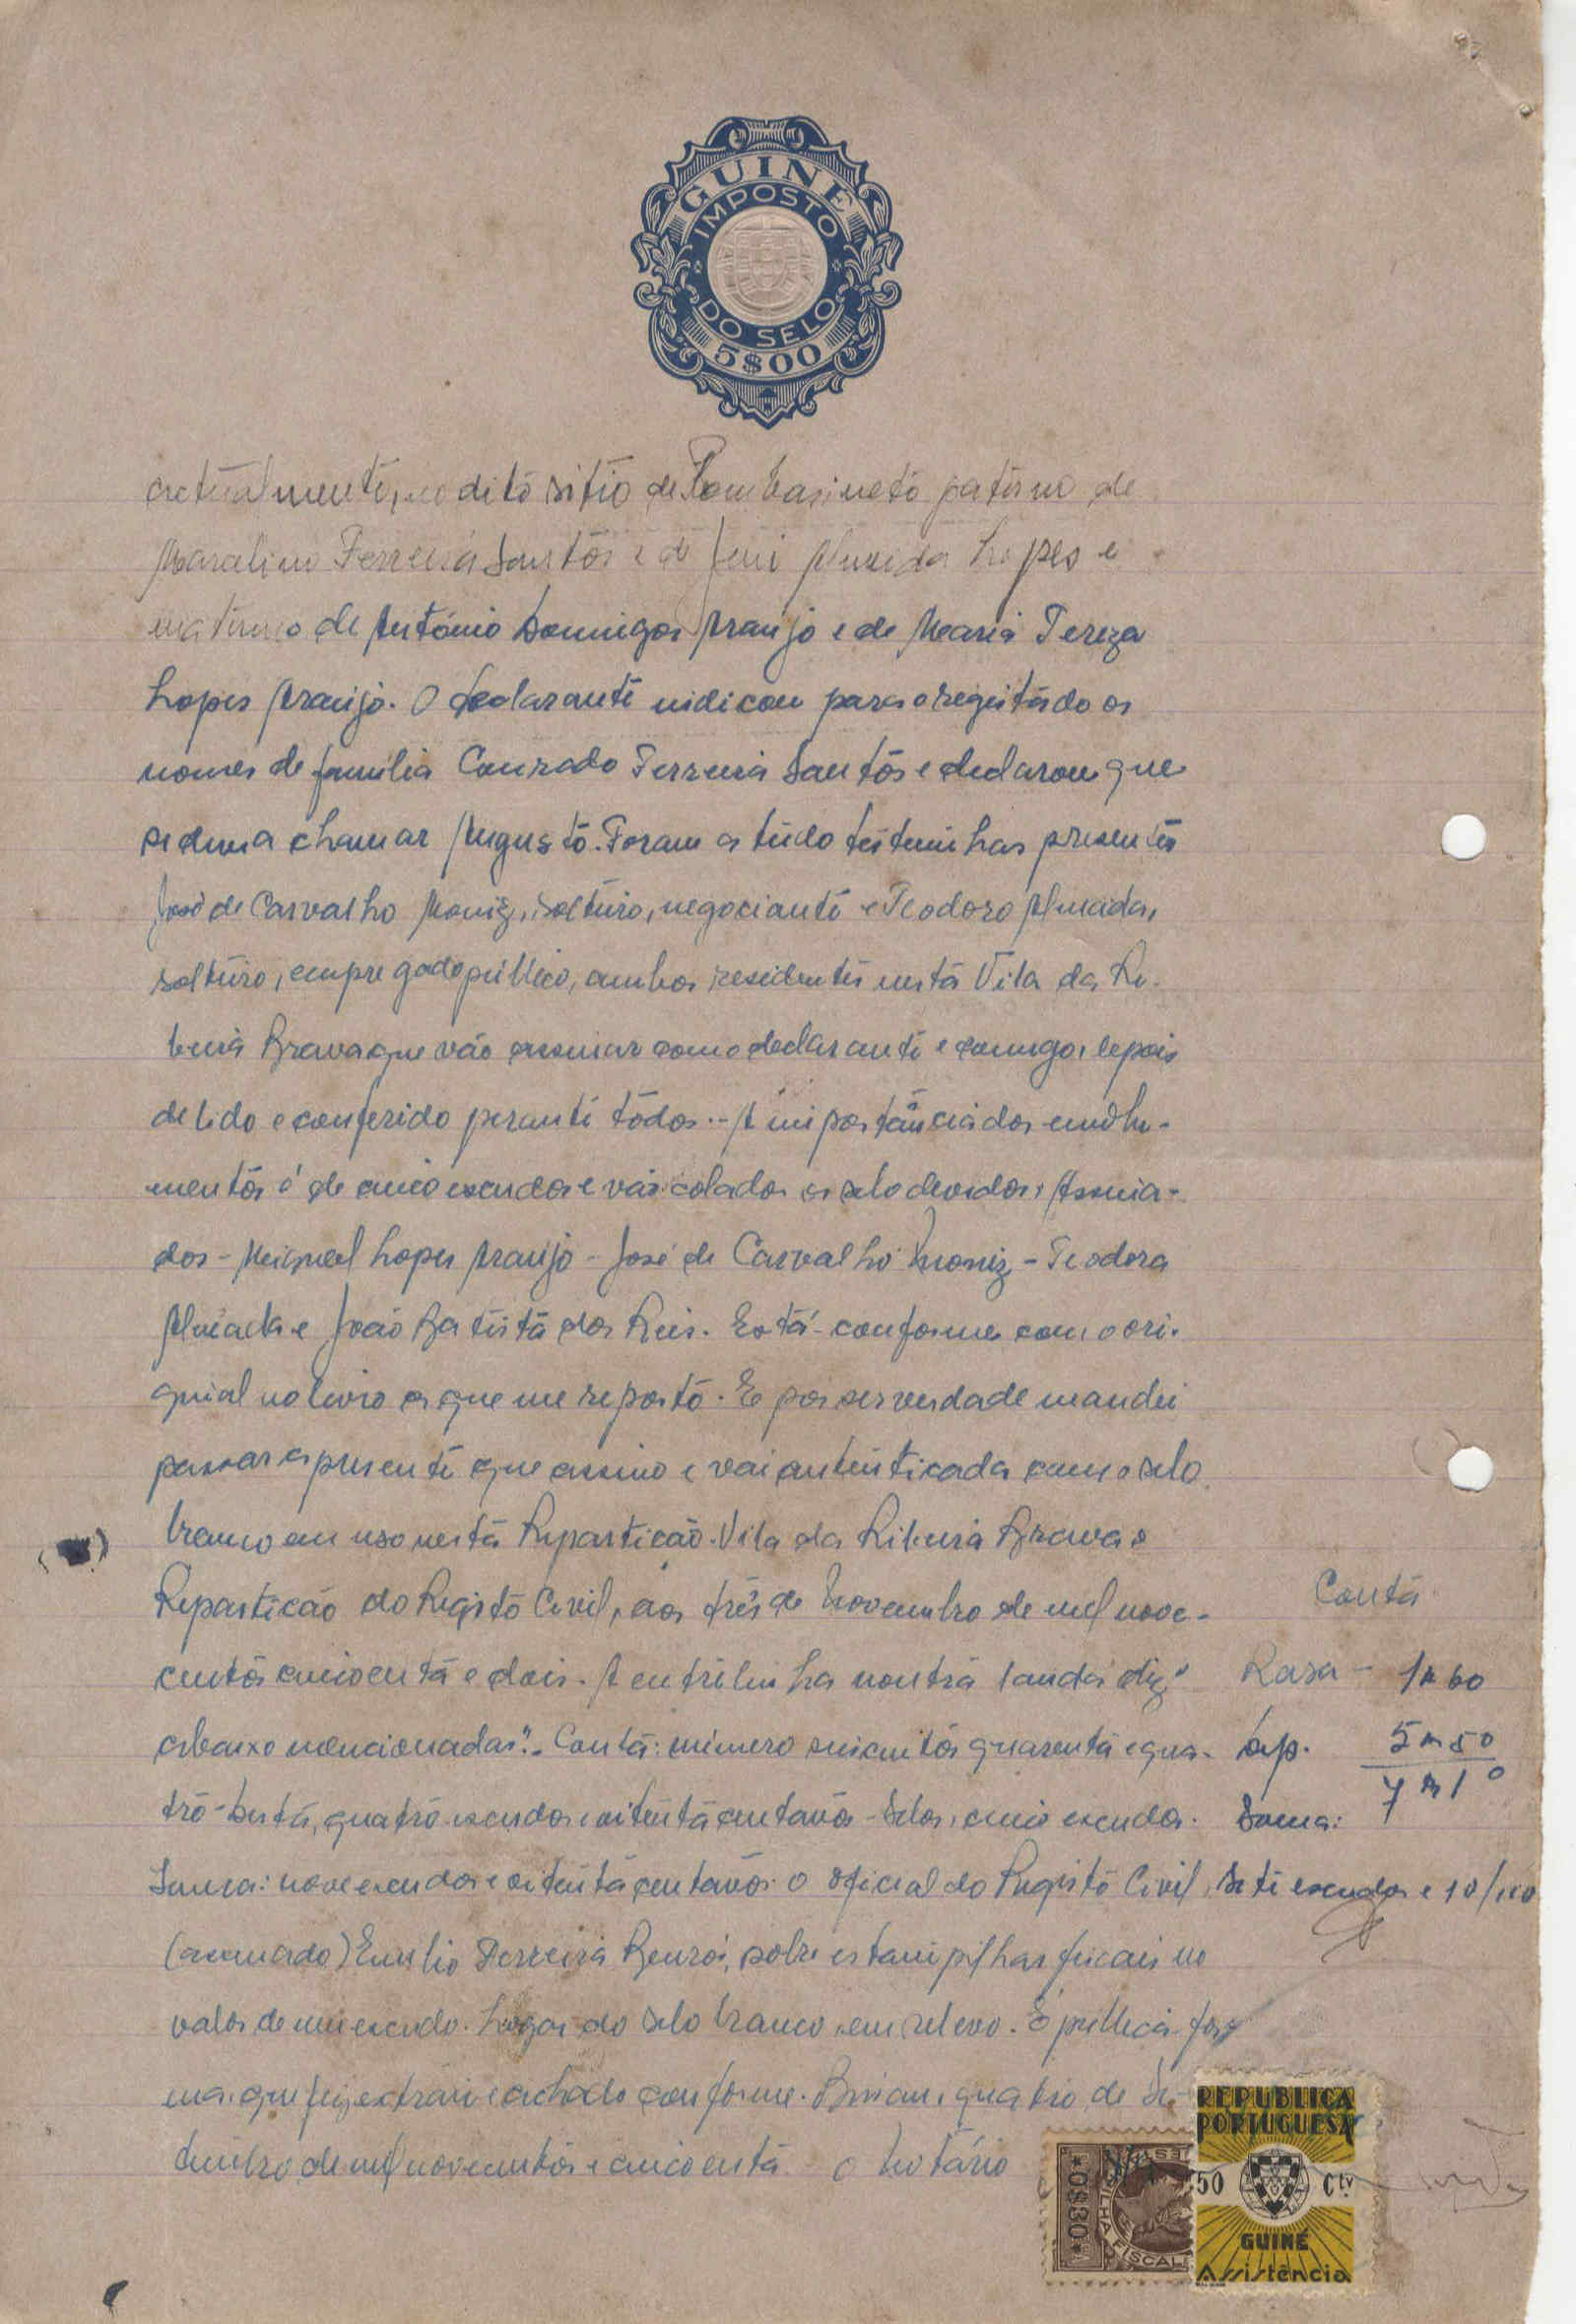 GUINÉ
IMPOSTO
DO SELO
5$00
actualmente, no dito sitio de neto paterno de
Ferreira Santos e de Lopes e
materno de António Domingos Araujo e de Maria Tereza
Lopes Araujo. O declarante indicou para o registado os
nomes de familia Conrado Ferreira Santos e declarou que
se devia chamar Augusto. Foram a tudo testeminhas presentes
José de Carvalho Moniz, solteiro, negociante e Teodoro Almada,
solteiro, empregado público, ambos residentes nesta Vila da Ri-
beira Brava que vão assinar com o declarante e comigo, depois
de lido e conferido perante todos. - A importância dos emolu-
mentos é de cinco escudos e vão colados os selo devidos, Assina-
dos - Miguel Lopes Araujo - José de Carvalho Moniz - Teodoro
Almada e João Batista dos Reis. Está conforme com o ori-
ginal no livro a que me reporto. E por ser verdade mandei
passar a presente que assino e vai autenticada com o selo
branco em uso nesta Repartição. Vila da Ribeira Brava e
Repartição do Registo Civil, aos três de Novembro de mil nove-
centos cincoenta e dois. A entrelinha noutra lauda diz "
abaixo mencionadas". Conta: número quinhentos quarenta e qua-
tro - , quatro escudos e oitenta centavos - Selos, cinco escudos.
Soma: nove escudos e oitenta centavos. O oficial do Registo Civil
(assinado) Emilio Ferreira , sobre estampilhas fiscais no
valor de um escudo. Lugar do selo branco, em relevo. É publica-for
ma, que fiz extrair e achado conforme. Bissau, quatro de De-
zembro de mil novecentos e cincoenta O Notário
Conta
Rasa - 1$60
Sêp. 5$50
7$10
Soma:
Sete escudos e 10/100
REPUBLICA
PORTUGUESA
50 Ctv
GUINÉ
Assistência
0$30
FISCAL